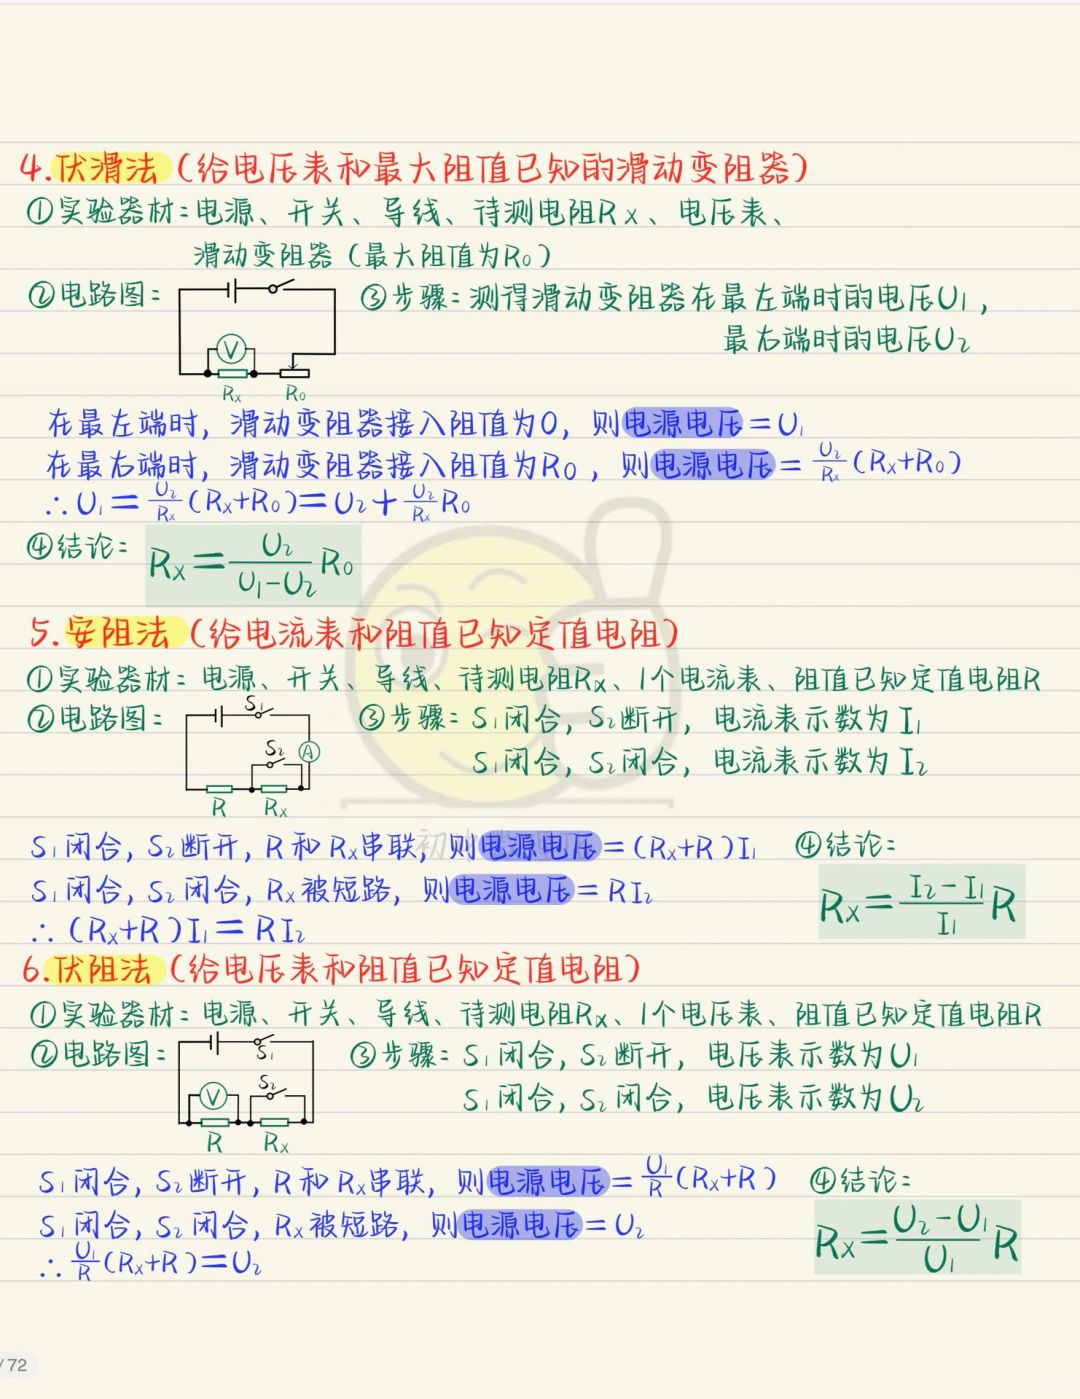 4.伏滑法(给电压表和最大阻值已知的滑动变阻器)
①实验器材:电源、开关、导线、待测电阻Rx、电压表、
滑动变阻器(最大阻值为R₀)
②电路图:
V
Rx R₀
③步骤:测得滑动变阻器在最左端时的电压U₁,
最右端时的电压U₂
在最左端时,滑动变阻器接入阻值为0,则电源电压=U₁
在最右端时,滑动变阻器接入阻值为R₀,则电源电压=U₂/Rx(Rx+R₀)
∴U₁=U₂/Rx(Rx+R₀)=U₂+U₂/Rx R₀
④结论: Rx=U₂/(U₁-U₂) R₀
5.安阻法(给电流表和阻值已知定值电阻)
①实验器材:电源、开关、导线、待测电阻Rx、1个电流表、阻值已知定值电阻R
②电路图:
S₁
S₂ A
R Rx
③步骤:S₁闭合,S₂断开,电流表示数为I₁
S₁闭合,S₂闭合,电流表示数为I₂
S₁闭合,S₂断开,R和Rx串联,则电源电压=(Rx+R)I₁
S₁闭合,S₂闭合,Rx被短路,则电源电压=RI₂
∴(Rx+R)I₁=RI₂
④结论:
Rx=(I₂-I₁)/I₁ R
6.伏阻法(给电压表和阻值已知定值电阻)
①实验器材:电源、开关、导线、待测电阻Rx、1个电压表、阻值已知定值电阻R
②电路图:
S₁
V S₂
R Rx
③步骤:S₁闭合,S₂断开,电压表示数为U₁
S₁闭合,S₂闭合,电压表示数为U₂
S₁闭合,S₂断开,R和Rx串联,则电源电压=U₁/R(Rx+R)
S₁闭合,S₂闭合,Rx被短路,则电源电压=U₂
∴U₁/R(Rx+R)=U₂
④结论:
Rx=(U₂-U₁)/U₁ R
/72